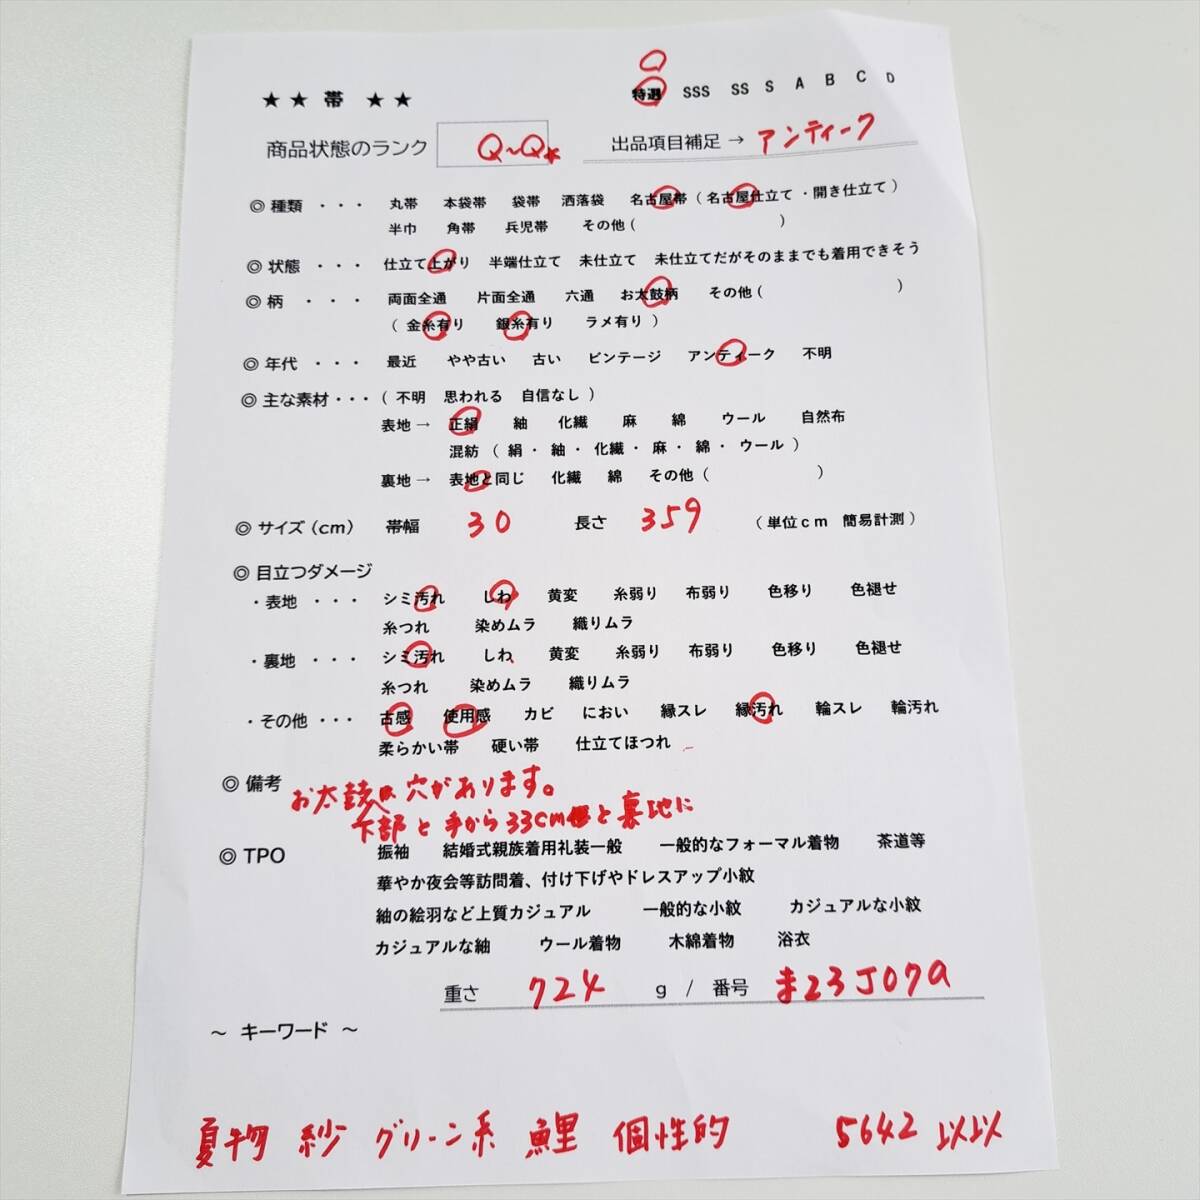 Q
★ ★ 帯 ★ ★ 特選 SSS SS S A B C D
商品状態のランク Q~Q★ 出品項目補足 → アンティーク
◎ 種類 ・・・ 丸帯 本袋帯 袋帯 洒落袋 名古屋帯 ( 名古屋仕立て ・ 開き仕立て )
半巾 角帯 兵児帯 その他 ( )
◎ 状態 ・・・ 仕立て上がり 半端仕立て 未仕立て 未仕立てだがそのままでも着用できそう
◎ 柄 ・・・ 両面全通 片面全通 六通 お太鼓柄 その他 ( )
( 金糸有り 銀糸有り ラメ有り )
◎ 年代 ・・・ 最近 やや古い 古い ビンテージ アンティーク 不明
◎ 主な素材・・・ ( 不明 思われる 自信なし )
表地 → 正絹 紬 化繊 麻 綿 ウール 自然布
混紡 ( 絹 ・ 紬 ・ 化繊 ・ 麻 ・ 綿 ・ ウール )
裏地 → 表地と同じ 化繊 綿 その他 ( )
◎ サイズ (cm) 帯幅 30 長さ 359 ( 単位cm 簡易計測 )
◎ 目立つダメージ
・表地 ・・・ シミ汚れ しわ 黄変 糸弱り 布弱り 色移り 色褪せ
糸つれ 染めムラ 織りムラ
・裏地 ・・・ シミ汚れ しわ 黄変 糸弱り 布弱り 色移り 色褪せ
糸つれ 染めムラ 織りムラ
・その他 ・・・ 古感 使用感 カビ におい 縁スレ 縁汚れ 輪スレ 輪汚れ
柔らかい帯 硬い帯 仕立てほつれ
◎ 備考 お太鼓 穴があります。
下部と手から33cm と裏地に
◎ TPO 振袖 結婚式親族着用礼装一般 一般的なフォーマル着物 茶道等
華やか夜会等訪問着、付け下げやドレスアップ小紋
紬の絵羽など上質カジュアル 一般的な小紋 カジュアルな小紋
カジュアルな紬 ウール着物 木綿着物 浴衣
重さ 724 g / 番号 ま23J07a
~ キーワード ~
夏物 紗 グリーン系 鯉 個性的 5642